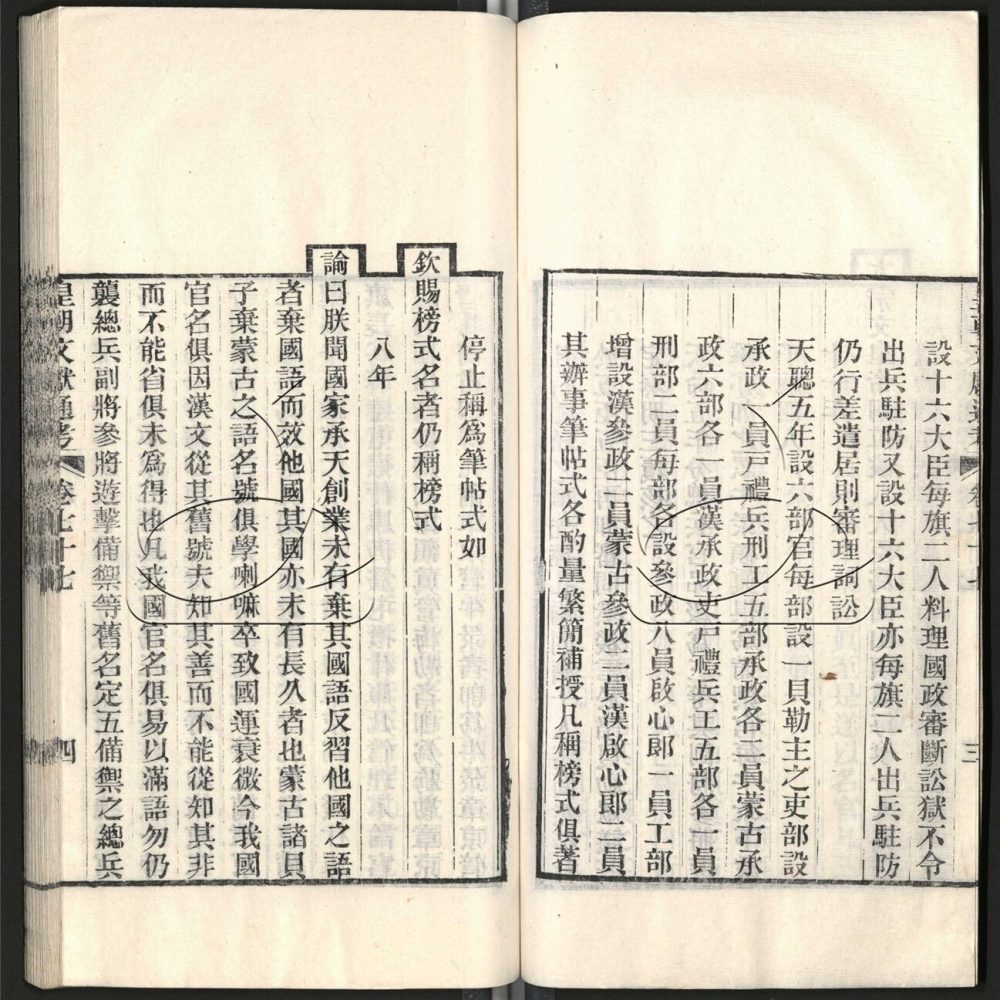 設十六大臣每旗二人料理國政審斷訟獄不令
出兵駐防又設十六大臣亦每旗二人出兵駐防
仍行差遣居則審理詞訟
天聰五年設六部官每部設一貝勒主之吏部設
承政一員戸禮兵刑工五部承政各二員蒙古承
政六部各一員漢承政吏戸禮兵工五部各一員
刑部二員每部各設參政八員啟心郎一員工部
增設漢參政二員蒙古參政二員漢啟心郎二員
其辦事筆帖式各酌量繁簡補授凡稱榜式俱著
三
停止稱為筆帖式如
欽賜榜式名者仍稱榜式
八年
諭曰朕聞國家承天創業未有棄其國語反習他國之語
者棄國語而效他國其國亦未有長久者也蒙古諸貝
子棄蒙古之語名號俱學喇嘛卒致國運衰微今我國
官名俱因漢文從其舊號夫知其善而不能從知其非
而不能省俱未為得也凡我國官名俱易以滿語勿仍
襲總兵副將參將遊擊備禦等舊名定五備禦之總兵
皇朝文獻通考 卷七十七 四